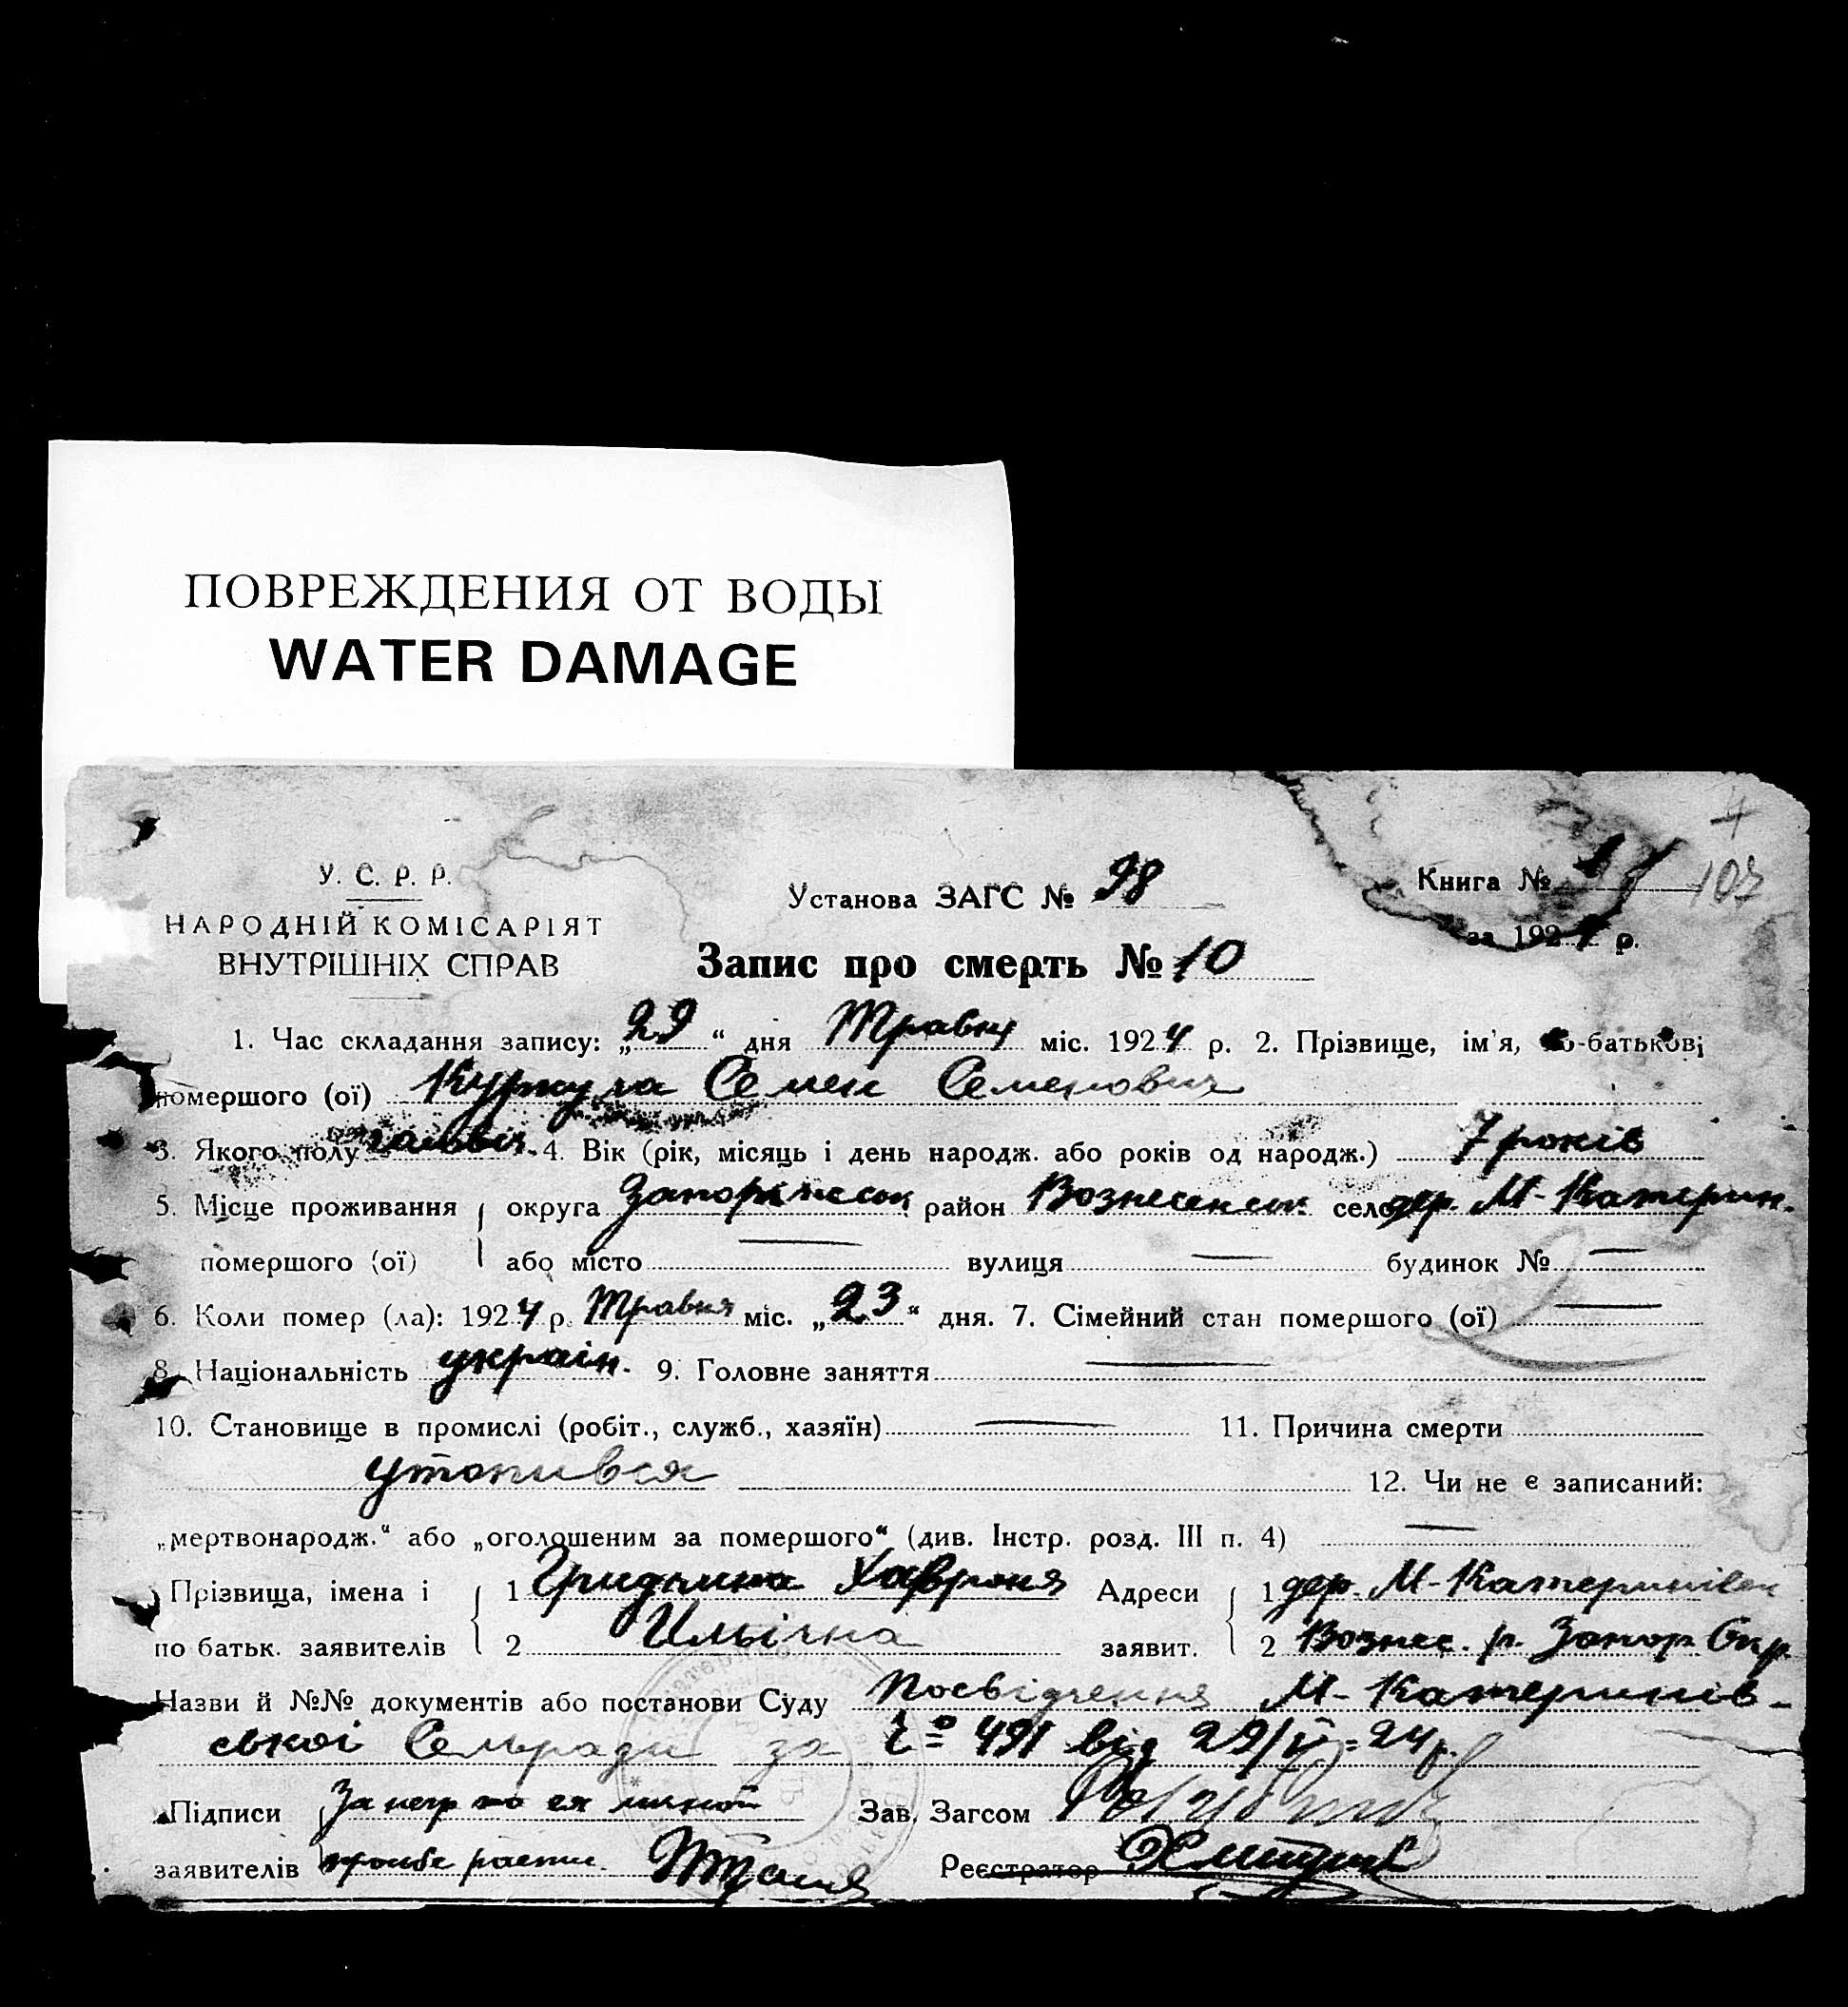 ПОВРЕЖДЕНИЯ ОТ ВОДЫ
WATER DAMAGE
У. С. Р. Р.
НАРОДНІЙ КОМІСАРІЯТ
ВНУТРІШНІХ СПРАВ
Установа ЗАГС № 98
Книга № 1
за 1924 р.
107
Запис про смерть № 10
1. Час складання запису: „29“ дня Травня міс. 1924 р. 2. Прізвище, ім'я, по-батькові
помершого (ої) Семен Семенович
3. Якого полу 4. Вік (рік, місяць і день народж. або років од народж.) 7 років
5. Місце проживання округа Запоріжськ район Вознесенськ село дер. М-Катерин.
помершого (ої) або місто — вулиця — будинок № —
6. Коли помер (ла): 1924 р. Травня міс. „23“ дня. 7. Сімейний стан помершого (ої) —
8. Національність україн. 9. Головне заняття —
10. Становище в промислі (робіт., служб., хазяїн) — 11. Причина смерти
утопився 12. Чи не є записаний:
„мертвонародж.“ або „оголошеним за помершого“ (див. Інстр. розд. III п. 4) —
Прізвища, імена і 1 Хавроня Адреси 1 дер. М-Катеринівка
по батьк. заявителів 2 Ильічна заявит. 2 Вознес. р. Запор. Окр.
Назви й №№ документів або постанови Суду Посвідчення М-Катеринів-
ської Сельради за № 491 від 29/V-24 р.
Підписи За негр по ея личной Зав. Загсом
заявителів прозбе распис. Реєстратор